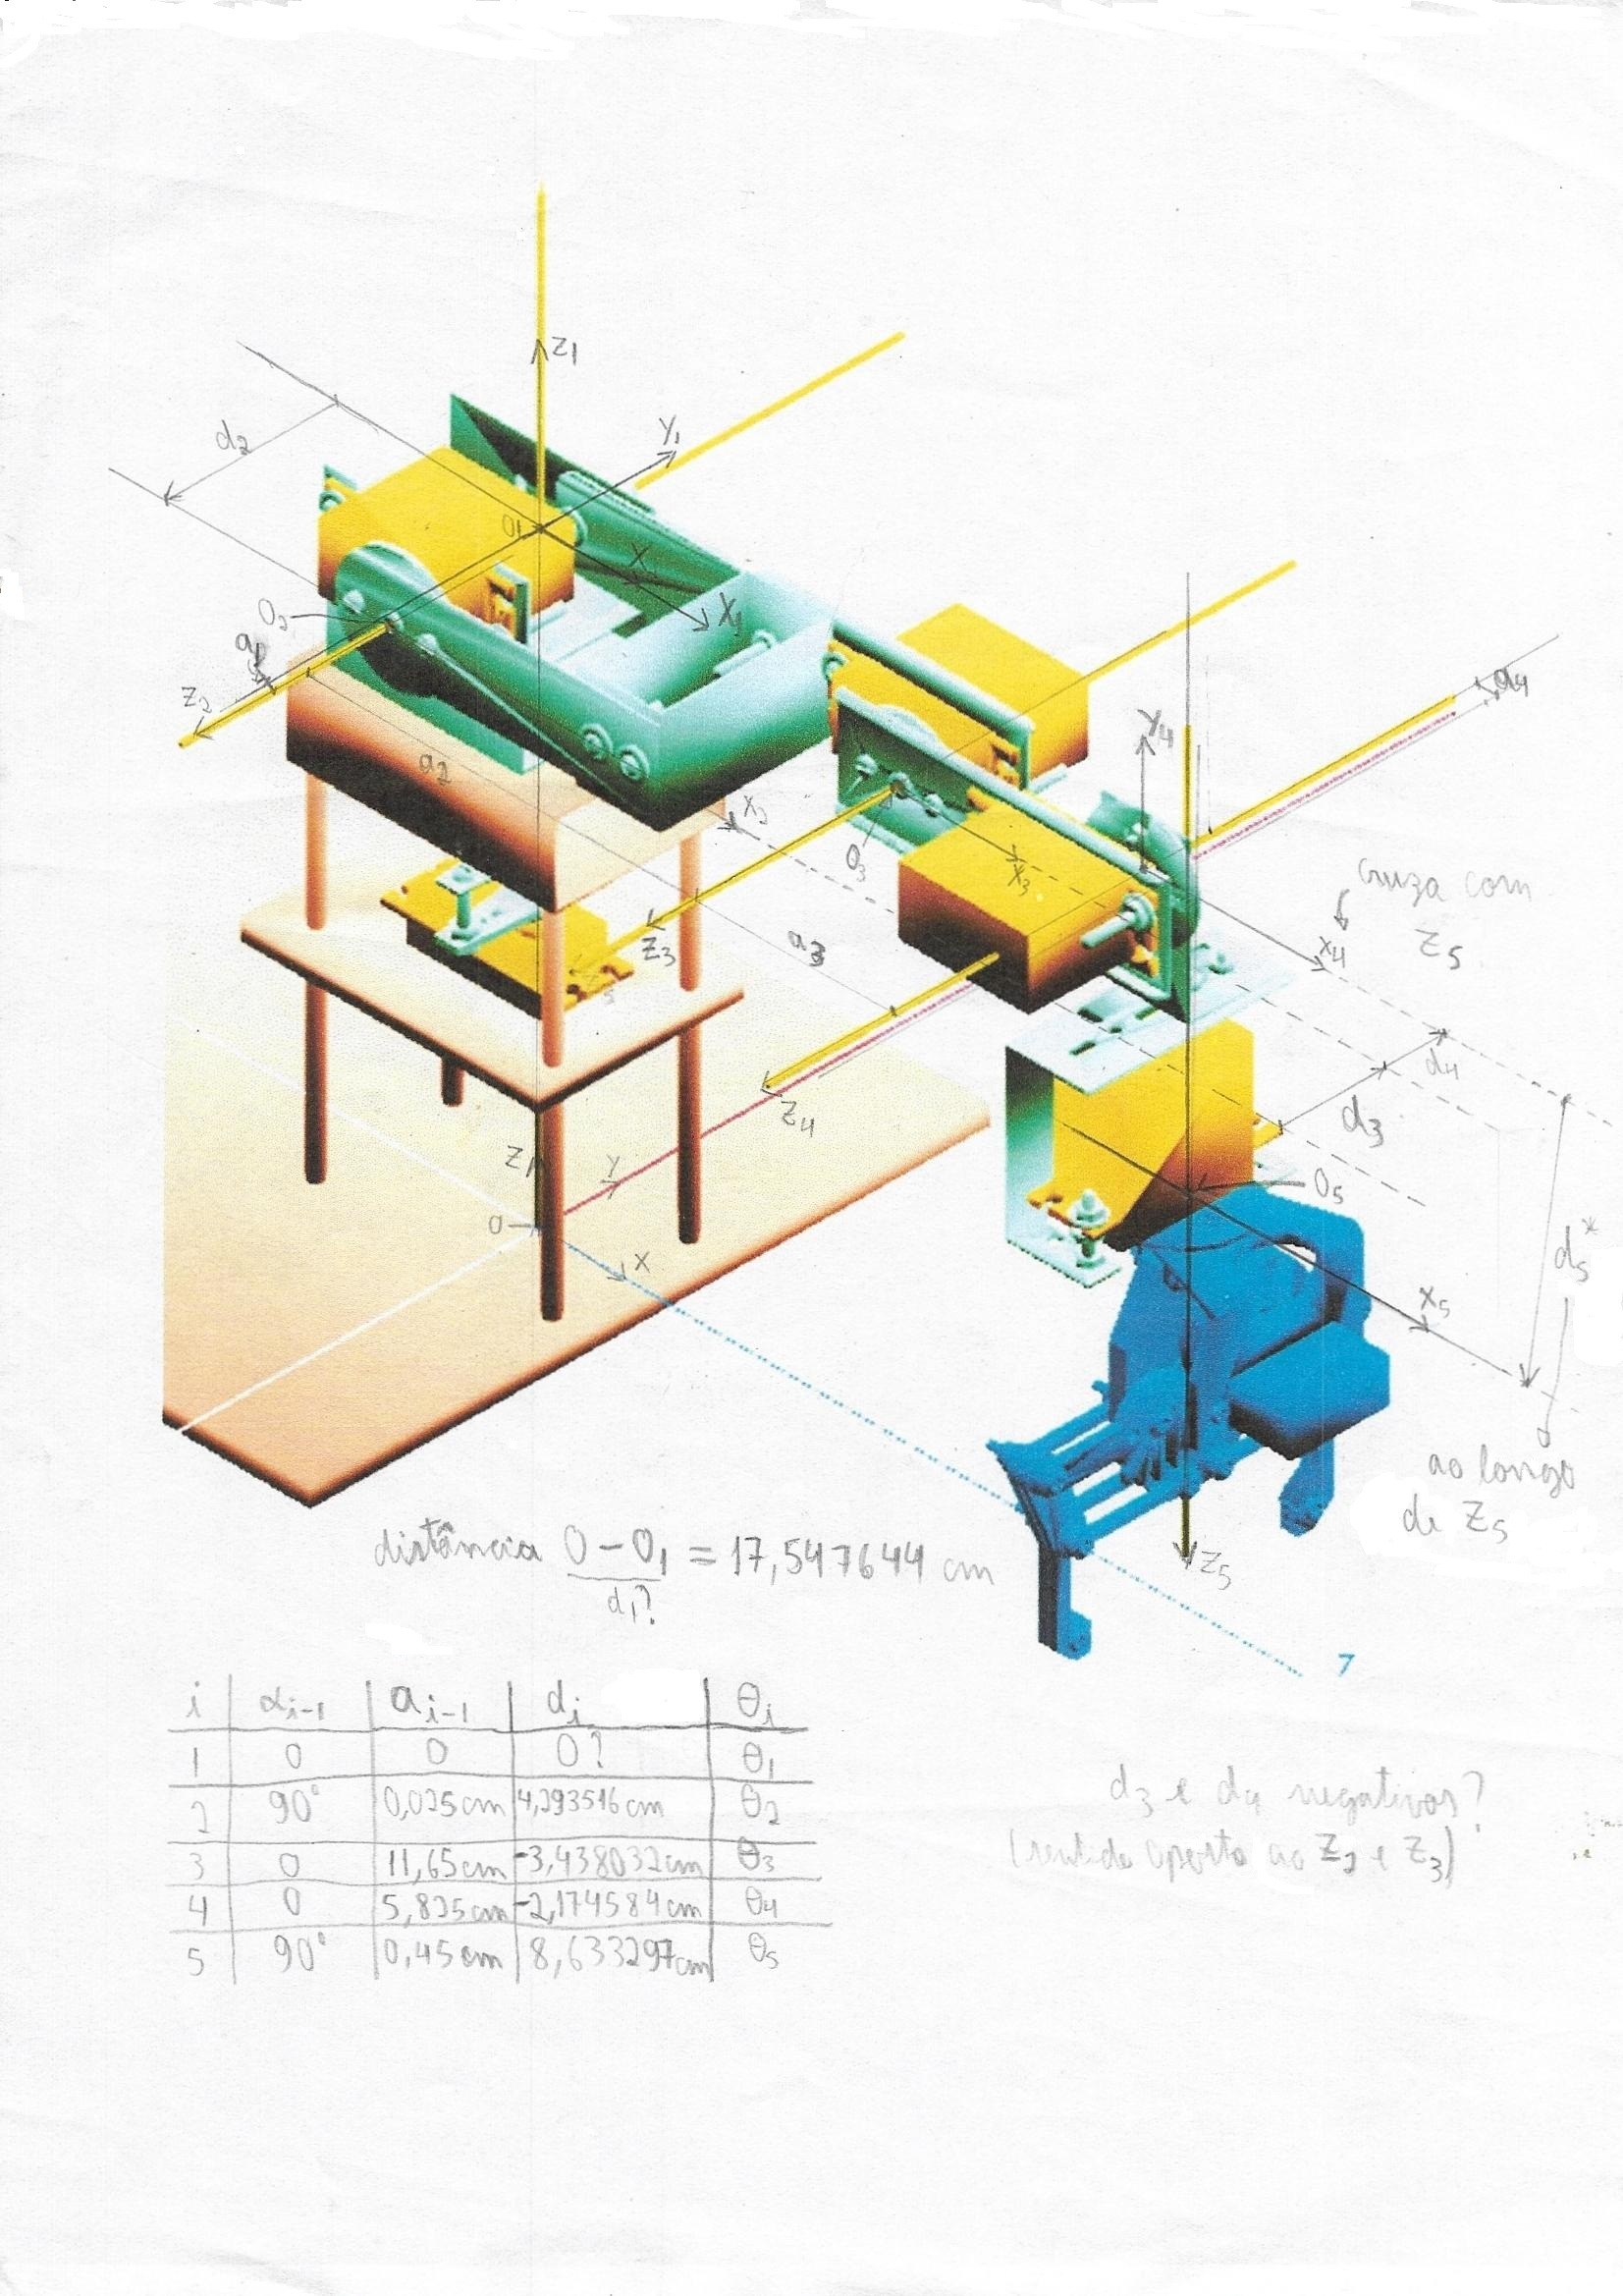 Z1
d2
Y1
O1
X
X1
O2
a1
Z2
a2
X2
a4
Y4
O3
X3
cruza com
Z5
X4
Z3
a3
d4
d3
Z4
Z
Y
O
X
O5
d5*
X5
ao longo
de Z5
Z5
distância O – O1 = 17,547644 cm
d1?
7
i | αi-1 | ai-1 | di | θi
1 | 0 | 0 | 0? | θ1
2 | 90° | 0,025cm | 4,293516cm | θ2
3 | 0 | 11,65cm | -3,438032cm | θ3
4 | 0 | 5,825cm | -2,174584cm | θ4
5 | 90° | 0,45cm | 8,633297cm | θ5
d3 e d4 negativos?
(sentido oposto ao Z2 e Z3)